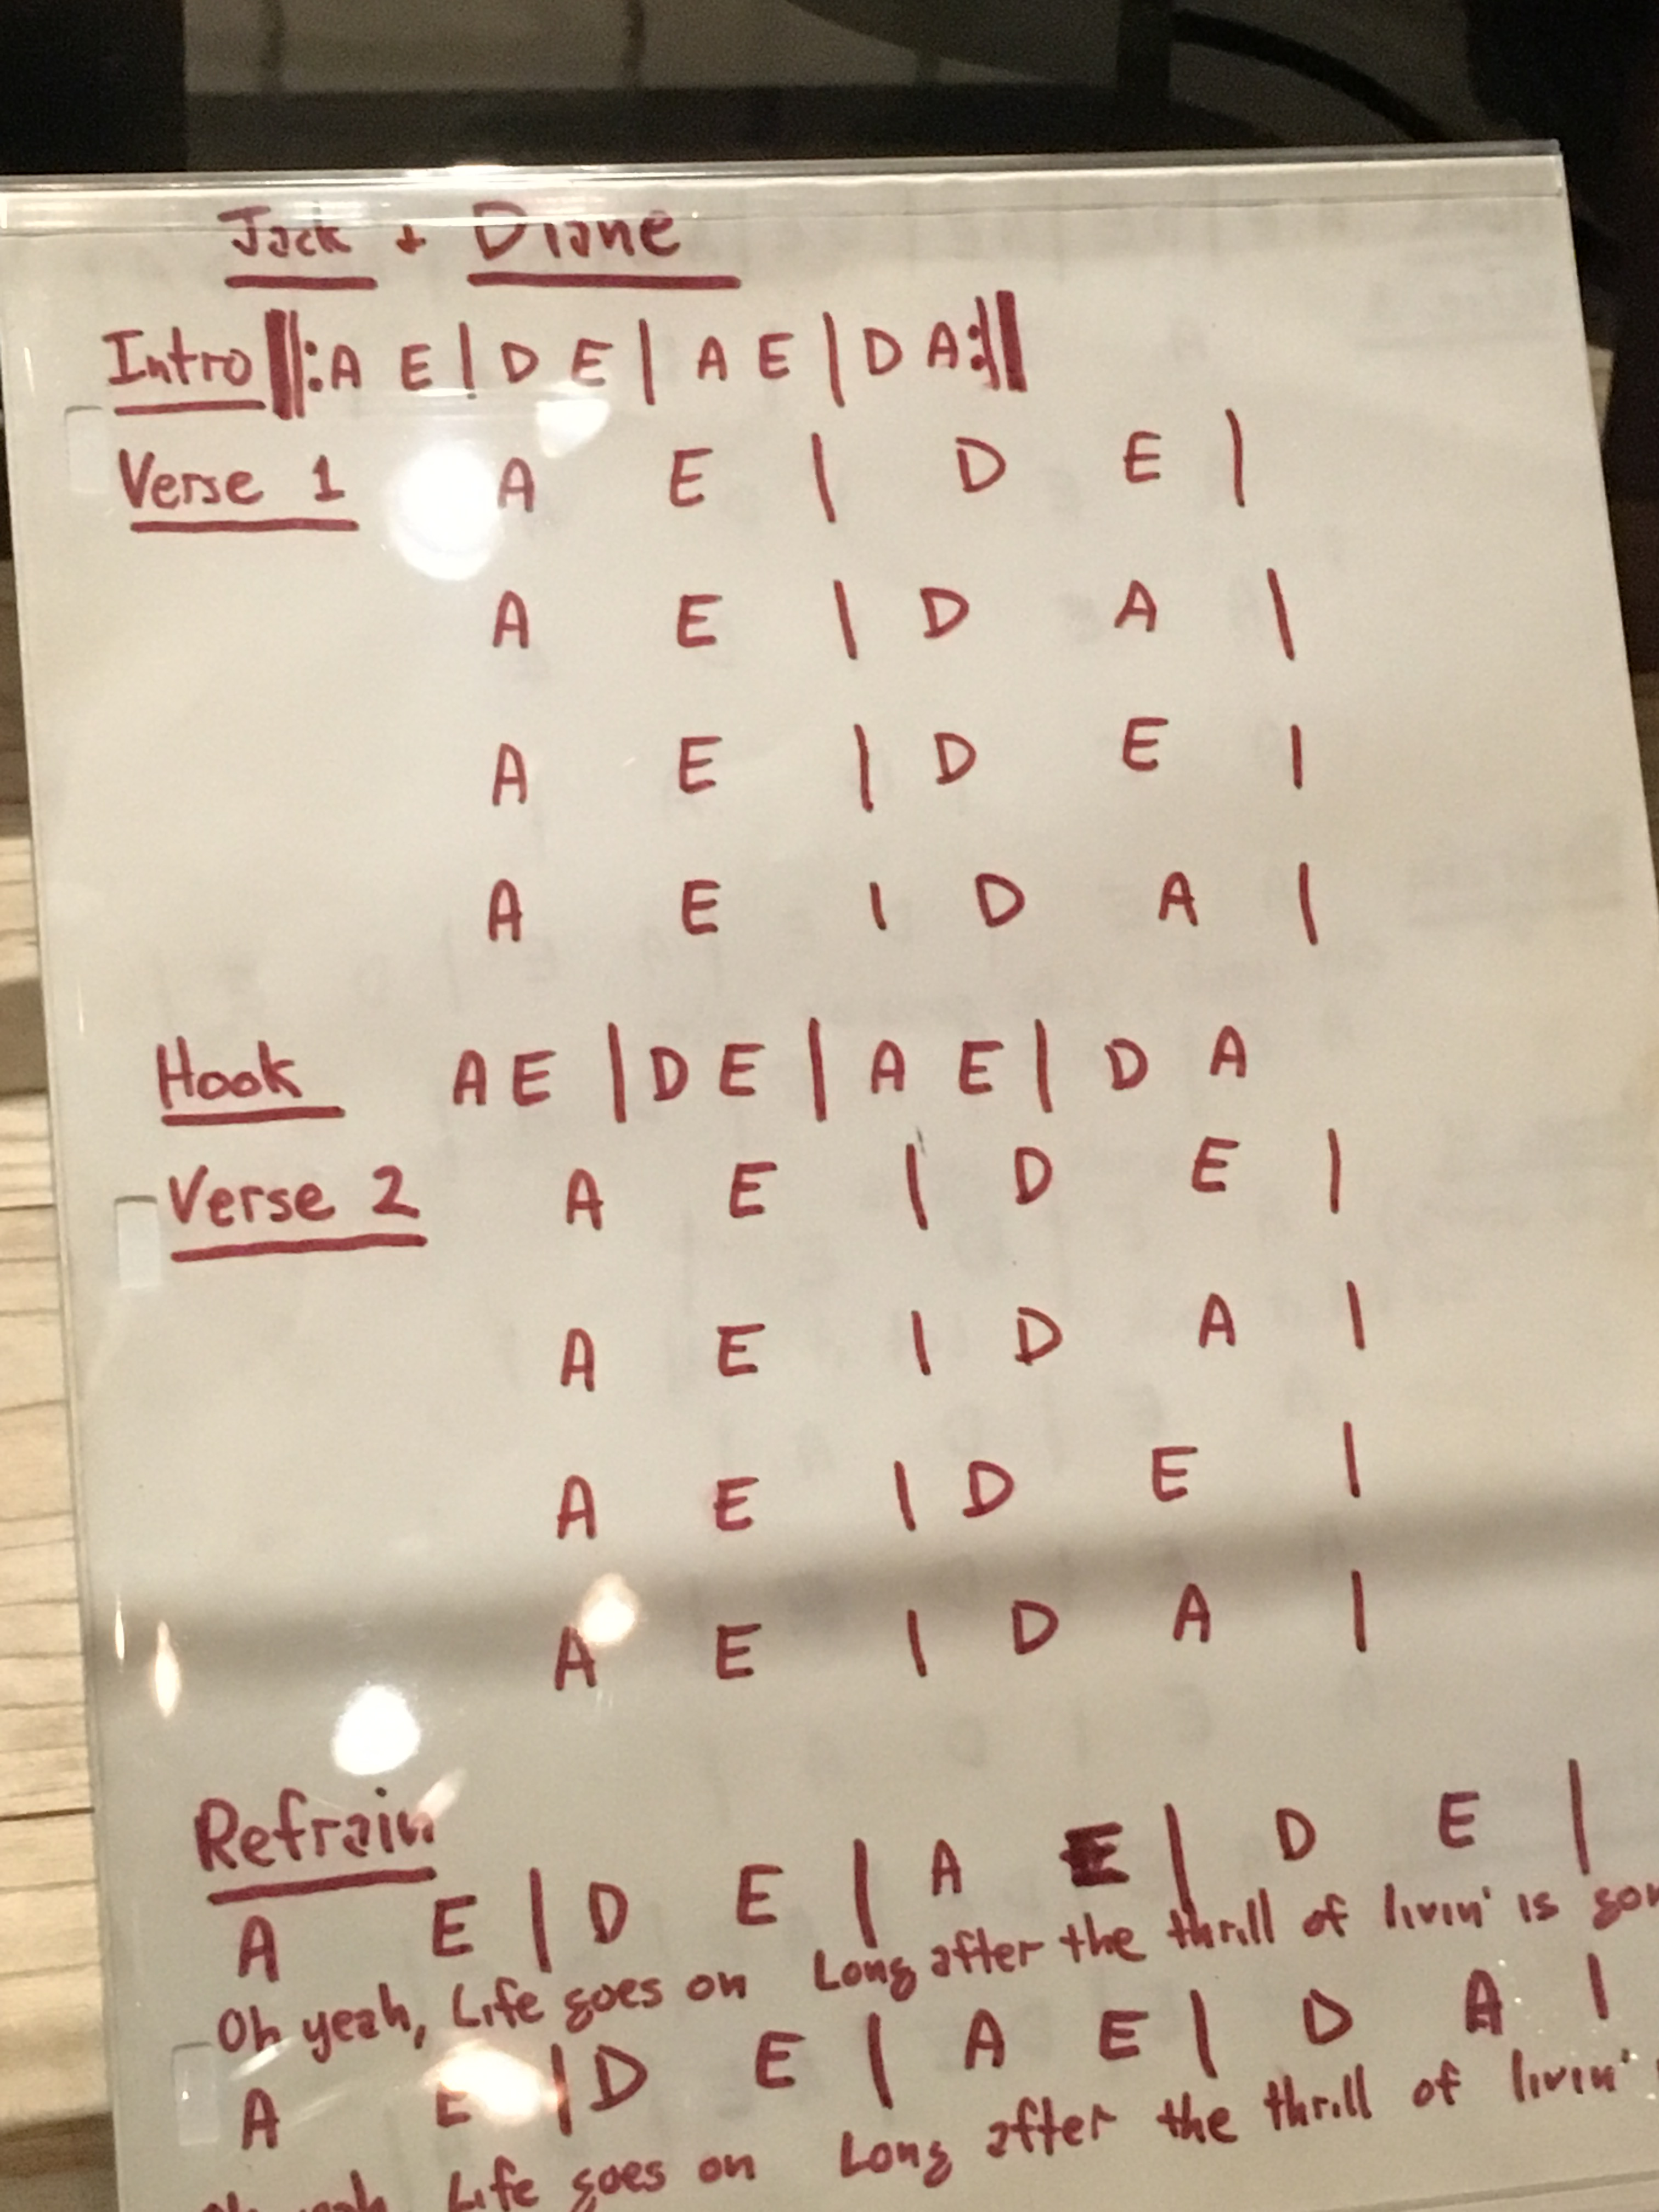 Jack + Diane
Intro ||: A E | D E | A E | D A :||
Verse 1 A E | D E |
A E | D A |
A E | D E |
A E | D A |
Hook A E | D E | A E | D A
Verse 2 A E | D E |
A E | D A |
A E | D E |
A E | D A |
Refrain
A E | D E | A E | D E |
Oh yeah, Life goes on Long after the thrill of livin' is
A E | D E | A E | D A |
yeah, Life goes on Long after the thrill of livin'